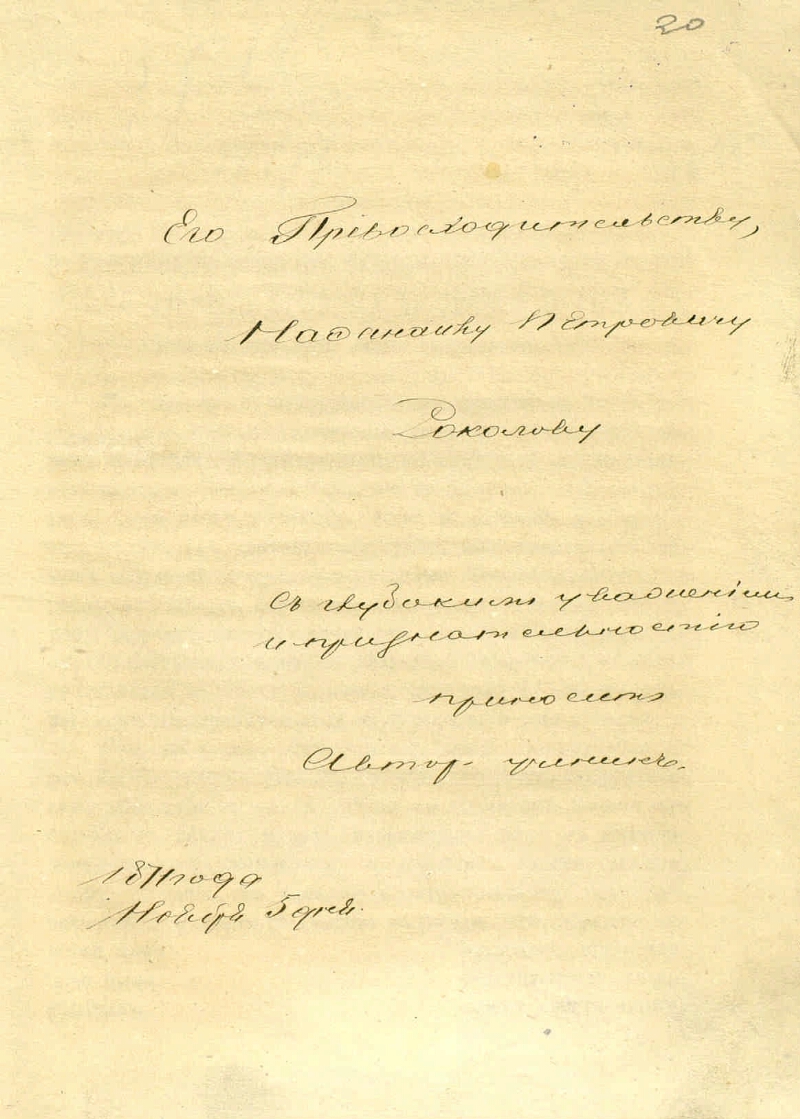 20
Его Превосходительству,
Нафанаилу Петровичу
Соколову
Съ глубокимъ уваженіемъ
и признательностію
приноситъ
Авторъ ученикъ.
1871 года
Ноября 5 дня.